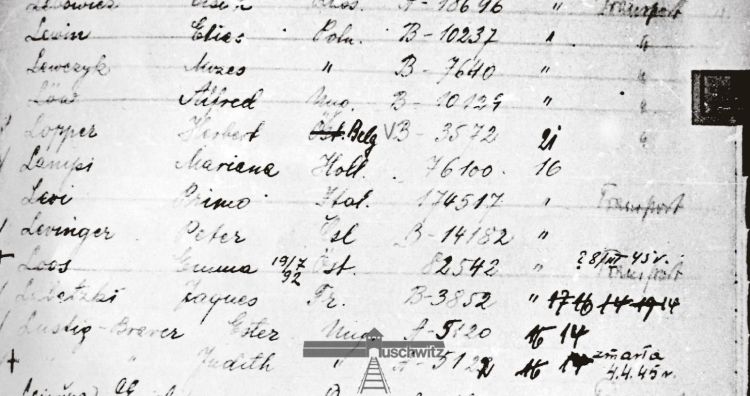 A-18696 Transport
Lewin Elias Poln. B-10237 "
Lewczyk Mozes " B-7640 "
Löw Alfred Ung. B-10129 "
Lopper Herbert Öst. Belg VB-3572 21
Lampi Mariena Holl. 76100. 16
Levi Primo Ital. 174517 " Transport
Levinger Peter Čsl B-14182 "
Loos Emma 19/7 92 Öst. 82542 " 28/III 45 r. Transport
Jaques Fr. B-3852 " 17 16 14 19 14
Lustig-Braver Ester Ung. A-5120 16 14
" " Judith " A-5122 16 14 zmarła 4.4.45 r.
Auschwitz